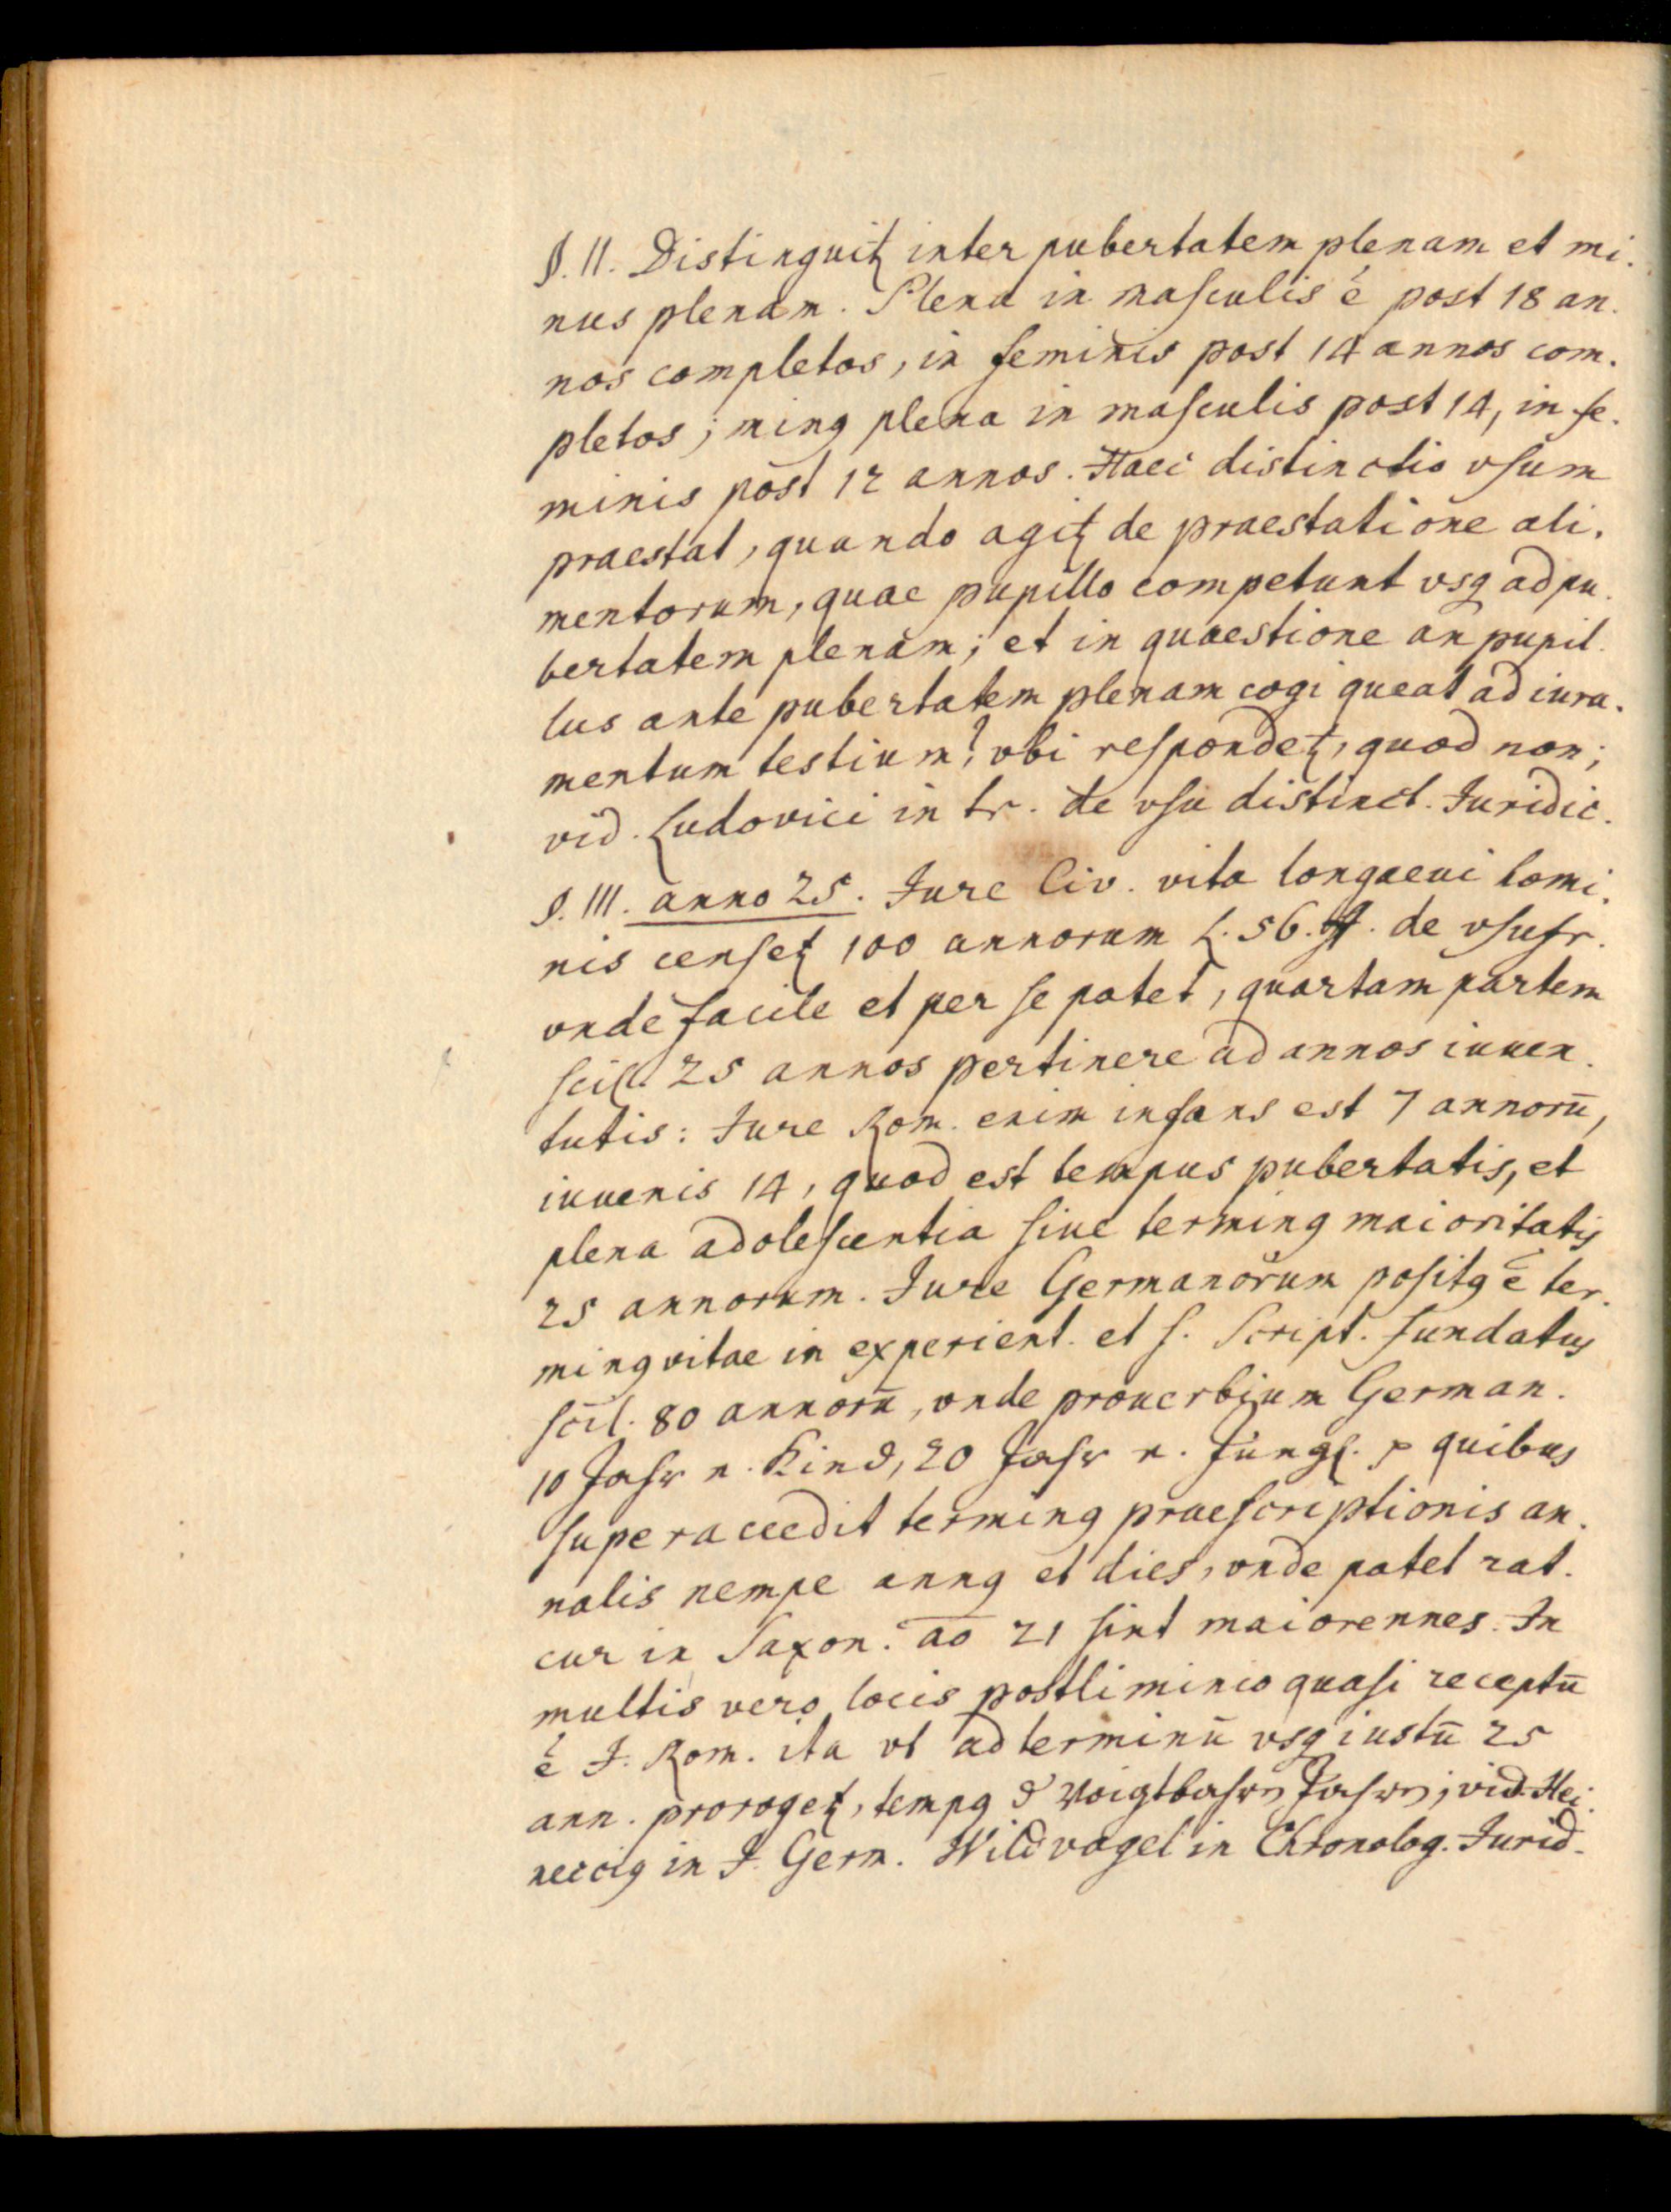 §. II. Distinguitꝛ inter pubertatem plenam et mi.
nus plenam. Plena in masculis é post 18 an.
nos completos, in feminis post 14 annos com.
pletos; minꝰ plena in masculis post 14, in fe.
minis post 12 annos. Haec distinctio vsum
praestat, quando agitꝛ de praestatione ali.
mentorum, quae pupillo competunt vsqꝫ ad pu.
bertatem plenam; et in quaestione an pupil.
lus ante pubertatem plenam cogi queat ad iura.
mentum testium? vbi respondetꝛ, quod non;
vid. Ludovici in tr. de vsu distinct. Juridic.
§. III. anno 25. Jure Civ. vita longaeui homi.
nis censetꝛ 100 annorum L. 56. ff. de vsufr.
vnde facile et per se patet, quartam partem
scil. 25 annos pertinere ad annos iuuen.
tutis: Jure Rom. enim infans est 7 annorū,
iuuenis 14, quod est tempus pubertatis, et
plena adolescentia siue terminꝰ maioritatis
25 annorum. Jure Germanorum positꝰ é ter.
minꝰ vitae in experient. et S. Script. fundatus
scil. 80 annorū, vnde prouerbium German.
10 Jahr e. Kind, 20 Jahr e. Jüngl. p quibus
superaccedit terminꝰ praescriptionis an.
nalis nempe annꝰ et dies, vnde patet rat.
cur in Saxon. ao 21 sint maiorennes. In
multis vero locis postliminio quasi receptū
é J. Rom. ita vt ad terminū vsqꝫ iustū 25
ann. prorogetꝛ, tempꝰ d Voigtbahren Jahren; vid. Hei.
necciꝰ in J. Germ. Wildvogel in Chronolog. Jurid.